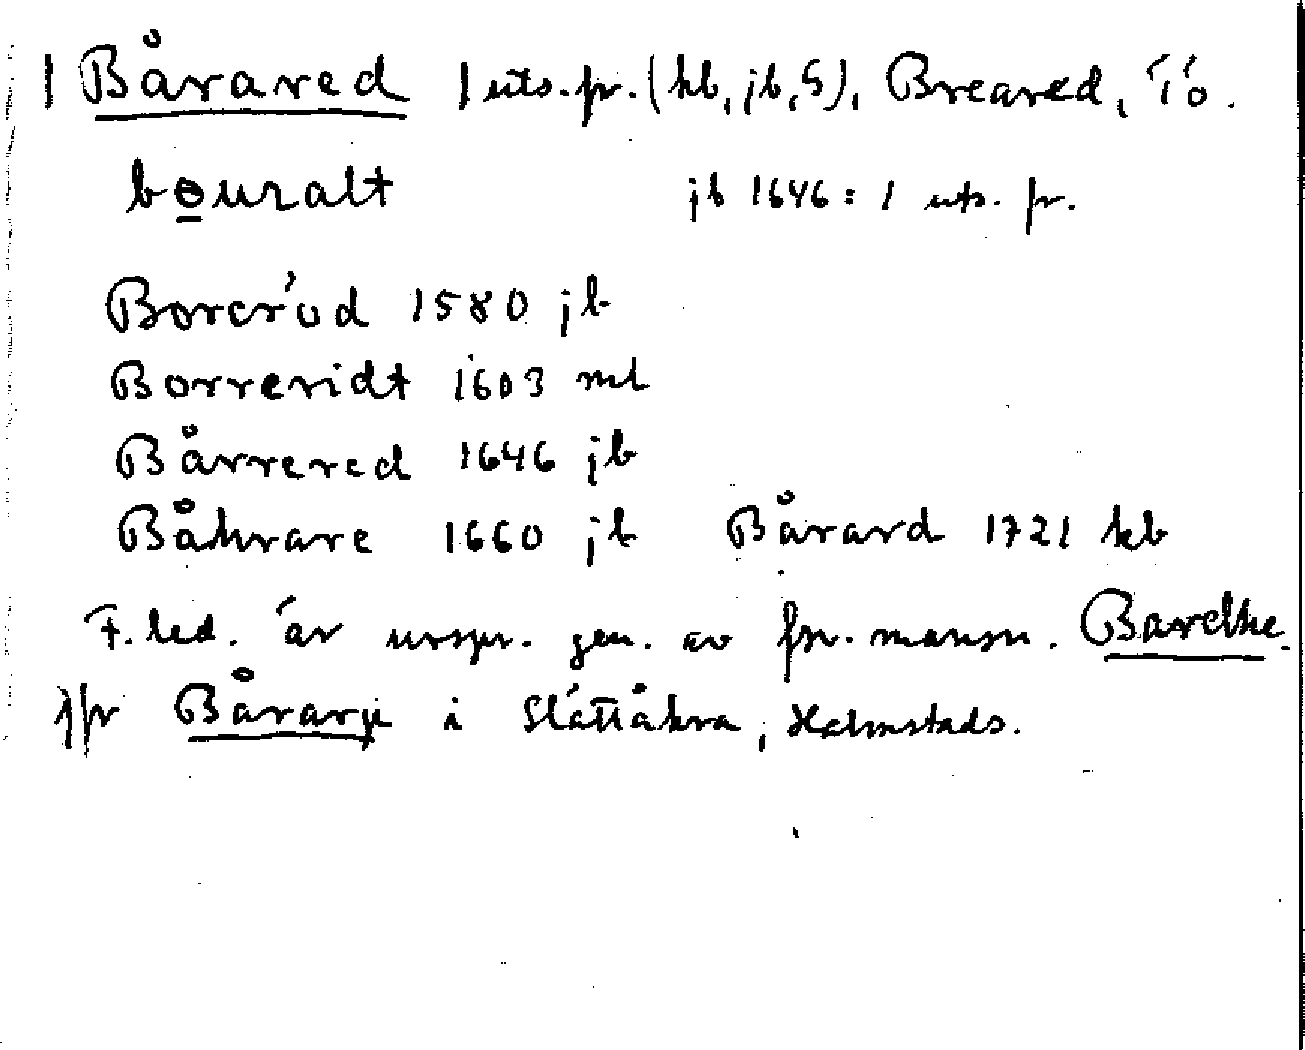 1 Bårared 1 uts. pr. (kb, jb, S), Breared, Tö.
bɵuralt jb 1646: 1 uts. pr.
Boreröd 1580 jb
Borreridt 1603 ml
Bårrered 1646 jb
Båhrare 1660 jb Bårard 1721 kb
F. led. är urspr. gen. av fsv. mansn.
jfr Bårarp i Slättåkra, Halmstads.